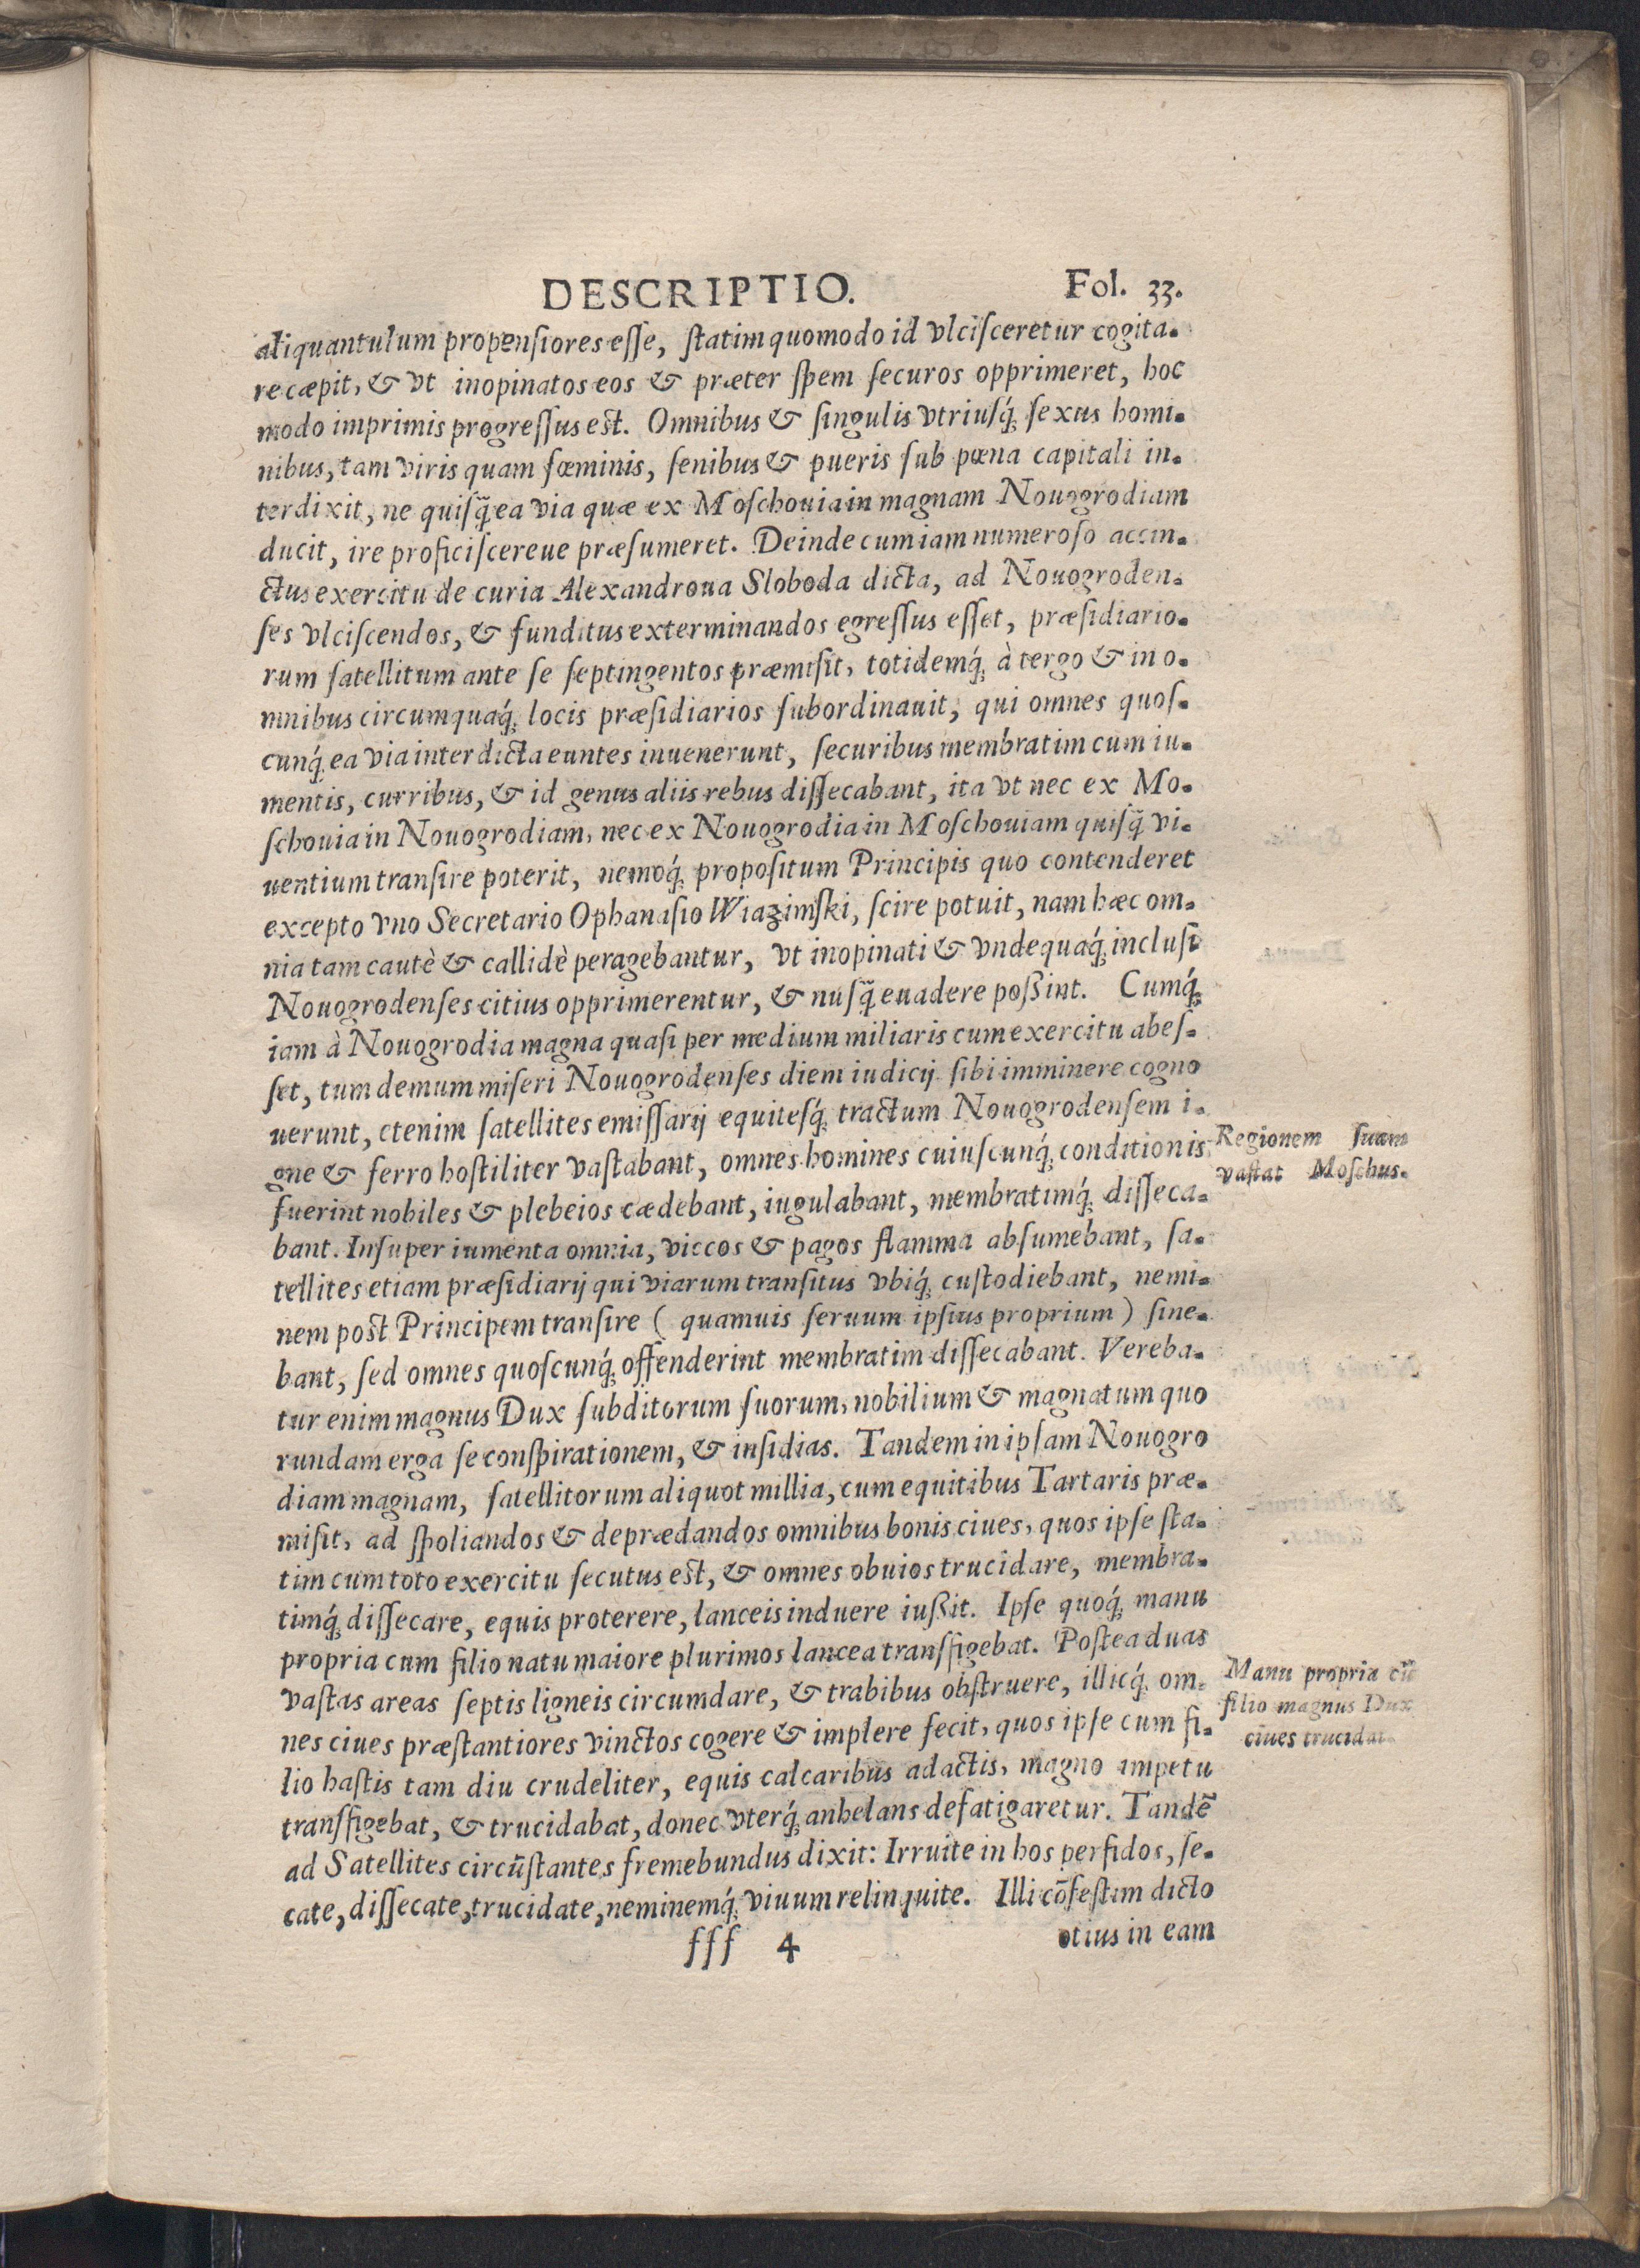 DESCRIPTIO. Fol. 33.
aliquantulum propensiores esse, ſtatim quomodo id vlciſceretur cogita-
re cæpit, & vt inopinatos eos & præter ſpem ſecuros opprimeret, hoc
modo imprimis progreſſus est. Omnibus & ſingulis vtriuſq́; ſexus homi-
nibus, tam viris quam fœminis, ſenibus & pueris ſub pœna capitali in-
terdixit, ne quiſq̃ ea via quæ ex Moſchouia in magnam Nouogrodiam
ducit, ire proficiſcereue præſumeret. Deinde cum iam numeroſo accin-
ctus exercitu de curia Alexandroua Sloboda dicta, ad Nouogroden-
ſes vlciſcendos, & funditus exterminandos egreſſus eſſet, præſidiario-
rum ſatellitum ante ſe ſeptingentos præmiſit, totidemq́; à tergo & in o-
mnibus circumquaq́; locis præſidiarios ſubordinauit, qui omnes quoſ-
cunq́; ea via interdicta euntes inuenerunt, ſecuribus membratim cum iu-
mentis, curribus, & id genus aliis rebus diſſecabant, ita vt nec ex Mo-
ſchouia in Nouogrodiam, nec ex Nouogrodia in Moſchouiam quiſq̃ vi-
uentium tranſire poterit, nemoq́; propoſitum Principis quo contenderet
excepto vno Secretario Ophanaſio Wiazimſki, ſcire potuit, nam hæc om-
nia tam cautè & callidè peragebantur, vt inopinati & vndequaq́; incluſi
Nouogrodenſes citius opprimerentur, & nuſq̃ euadere poßint. Cumq́;
iam à Nouogrodia magna quaſi per medium miliaris cum exercitu abeſ-
ſet, tum demum miſeri Nouogrodenſes diem iudicij ſibi imminere cogno
uerunt, etenim ſatellites emiſſarij equiteſq́; tractum Nouogrodenſem i-
gne & ferro hoſtiliter vaſtabant, omnes homines cuiuſcunq́; conditionis
Regionem ſuam
vaſtat Moſchus.
fuerint nobiles & plebeios cædebant, iugulabant, membratimq́; diſſeca-
bant. Inſuper iumenta omnia, viccos & pagos flamma abſumebant, ſa-
tellites etiam præſidiarij qui viarum tranſitus vbiq́; cuſtodiebant, nemi-
nem post Principem tranſire ( quamuis ſeruum ipſius proprium ) ſine-
bant, ſed omnes quoſcunq́; offenderint membratim diſſecabant. Vereba-
tur enim magnus Dux ſubditorum ſuorum, nobilium & magnatum quo
rundam erga ſe conſpirationem, & inſidias. Tandem in ipſam Nouogro
diam magnam, ſatellitorum aliquot millia, cum equitibus Tartaris præ-
miſit, ad ſpoliandos & deprædandos omnibus bonis ciues, quos ipſe ſta-
tim cum toto exercitu ſecutus est, & omnes obuios trucidare, membra-
timq́; diſſecare, equis proterere, lanceis induere iußit. Ipſe quoq́; manu
propria cum filio natu maiore plurimos lancea transfigebat. Poſtea duas
vaſtas areas ſeptis ligneis circumdare, & trabibus obſtruere, illicq́; om-
Manu propria cũ
filio magnus Dux
ciues trucidat
nes ciues præſtantiores vinctos cogere & implere fecit, quos ipſe cum fi-
lio haſtis tam diu crudeliter, equis calcaribus adactis, magno impetu
transfigebat, & trucidabat, donec vterq́; anhelans defatigaretur. Tandẽ
ad Satellites circũſtantes fremebundus dixit: Irruite in hos perfidos, ſe-
cate, diſſecate, trucidate, neminemq́; viuum relinquite. Illi cõfeſtim dicto
fff 4 otius in eam